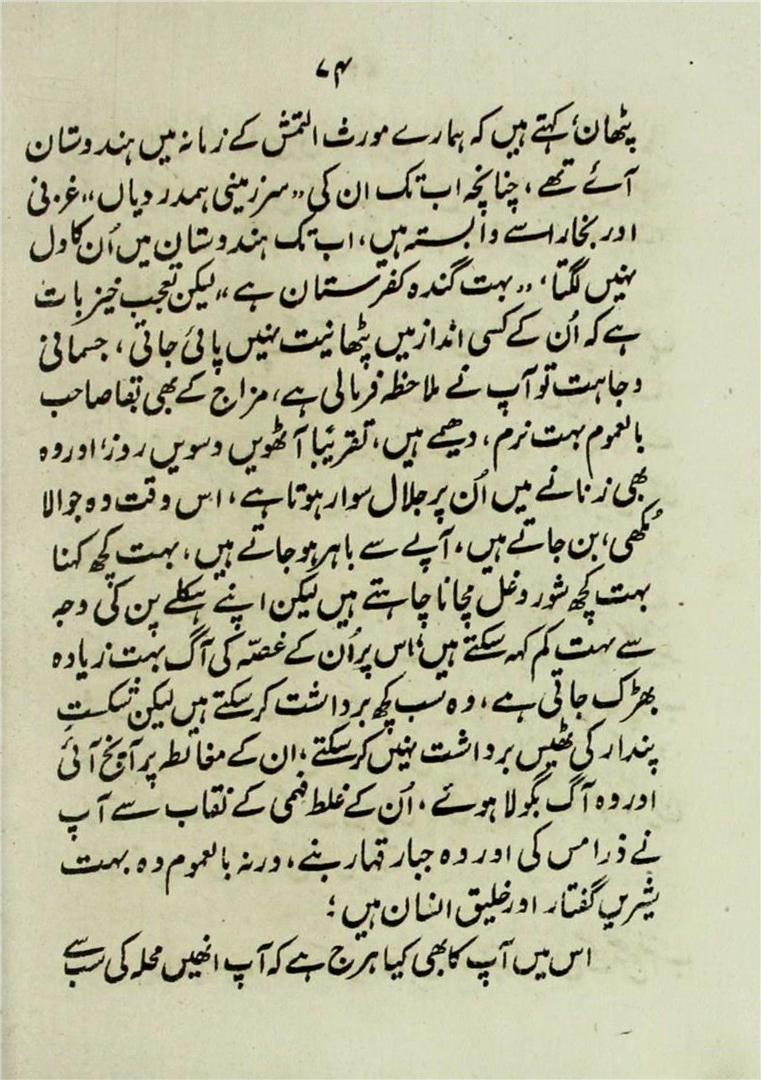 ۷۴
پٹھان، کہتے ہیں کہ ہمارے مورث التمش کے زمانہ میں ہندوستان
آئے تھے، چنانچہ اب تک ان کی ،،سرزمینی ہمدردیاں،، غزنی
اور بخارا سے وابستہ ہیں، اب تک ہندوستان میں اُن کا دل
نہیں لگتا، ،،بہت گندہ کفرستان ہے،، لیکن تعجب خیز بات
ہے کہ اُن کے کسی انداز میں پٹھانیت نہیں پائی جاتی، جسمانی
وجاہت تو آپ نے ملاحظہ فرمالی ہے، مزاج کے بھی بقا صاحب
بالعموم بہت نرم، دھیمے ہیں، تقریبًا آٹھویں دسویں روز، اور وہ
بھی زنانے میں اُن پر جلال سوار ہوتا ہے، اس وقت وہ جوالا
مُکھی، بن جاتے ہیں، آپے سے باہر ہو جاتے ہیں، بہت کچھ کہنا
بہت کچھ شور و غل مچانا چاہتے ہیں لیکن اپنے ہکلے پن کی وجہ
سے بہت کم کہہ سکتے ہیں، اس پر اُن کے غصّہ کی آگ بہت زیادہ
بھڑک جاتی ہے، وہ سب کچھ برداشت کر سکتے ہیں لیکن شکستِ
پندار کی ٹھیس برداشت نہیں کر سکتے، ان کے مغالطہ پر آنچ آئی
اور وہ آگ بگولا ہوئے، اُن کے غلط فہمی کے نقاب سے آپ
نے ذرا مس کی اور وہ جبار قہار بنے، ورنہ بالعموم وہ بہت
شیریں گفتار اور خلیق انسان ہیں؛
اس میں آپ کا بھی کیا ہرج ہے کہ آپ انھیں محلہ کی سب سے